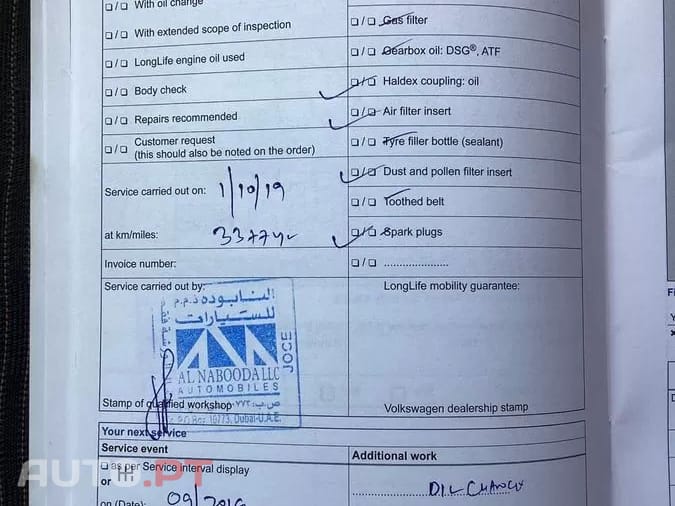 ❏/❏ With oil change
❏/❏ With extended scope of inspection
❏/❏ LongLife engine oil used
❏/❏ Body check
❏/❏ Repairs recommended
❏/❏ Customer request
(this should also be noted on the order)
Service carried out on: 1/10/19
at km/miles:
Invoice number:
Service carried out by:
النابوده ذ.م.م
للسيارات
JOCE
AL NABOODA LLC
AUTOMOBILES
Stamp of qualified workshop
Dubai-U.A.E.
❏/❏ Gas filter
❏/❏ Gearbox oil: DSG®, ATF
❏/❏ Haldex coupling: oil
❏/❏ Air filter insert
❏/❏ Tyre filler bottle (sealant)
❏/❏ Dust and pollen filter insert
❏/❏ Toothed belt
❏/❏ Spark plugs
❏/❏ .....................
LongLife mobility guarantee:
Volkswagen dealership stamp
Your next service
Service event
❏ as per Service interval display
or
on (Date):
Additional work
OIL CHANGE
AUTO.PT